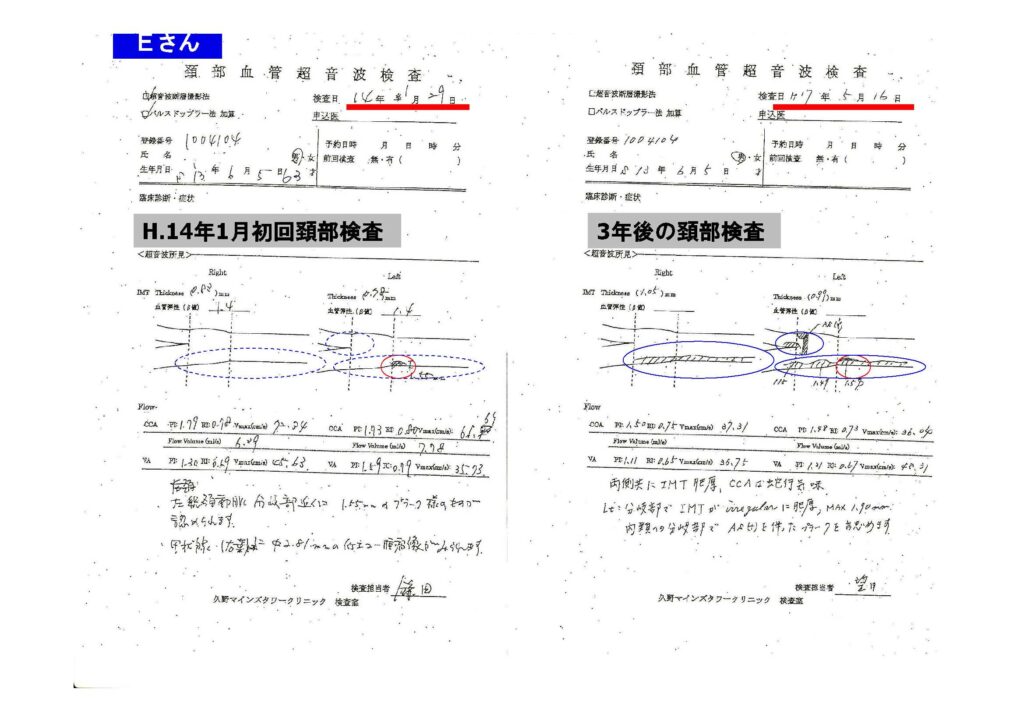 Eさん
頚部血管超音波検査
□超音波断層撮影法
検査日 14年 1月 29日
□パルスドップラー法 加算
申込医
登録番号 1004104
予約日時 月 日 時 分
氏 名 男・女
前回検査 無・有( )
生年月日 13年 6月 5日 63才
臨床診断・症状
H.14年1月初回頚部検査
<超音波所見>
Right
Left
IMT Thickness (0.83)mm
Thickness (0.78)mm
血管弾性(β値) 1.4
血管弾性(β値) 1.4
1.55mm
Flow
CCA PI: 1.79 RI: 0.78 Vmax(cm/s)
CCA PI: 1.73 RI: 0.80 Vmax(cm/s):
Flow Volume (ml/s)
Flow Volume (ml/s)
6.29
7.78
VA PI: 1.30 RI: 0.69 Vmax(cm/s) 45.63
VA PI: 1.59 RI: 0.79 Vmax(cm/s): 35.73
左総頚動脈に分岐部近くに 1.55mmのプラーク様のものが
認められます。
検査担当者
久野マインズタワークリニック 検査室
頚部血管超音波検査
□超音波断層撮影法
検査日 H17年 5月 16日
□パルスドップラー法 加算
申込医
登録番号 1004104
予約日時 月 日 時 分
氏 名 男・女
前回検査 無・有( )
生年月日 S13年 6月 5日 才
臨床診断・症状
3年後の頚部検査
<超音波所見>
Right
Left
IMT Thickness (1.05)mm
Thickness (0.99)mm
血管弾性(β値)
血管弾性(β値)
AS(+)
1.15 1.49
Flow
CCA PI: 1.50 RI: 0.75 Vmax(cm/s): 37.31
CCA PI: 1.48 RI: 0.73 Vmax(cm/s): 36.04
Flow Volume (ml/s)
Flow Volume (ml/s)
VA PI: 1.11 RI: 0.65 Vmax(cm/s): 36.75
VA PI: 1.21 RI: 0.67 Vmax(cm/s): 40.31
両側共にIMT肥厚, CCAは蛇行気味.
Lt: 分岐部でIMTがirregularに肥厚, MAX 1.90mm.
内頚への分岐部でAS(+)を伴ったプラークを認めます
検査担当者 望月
久野マインズタワークリニック 検査室